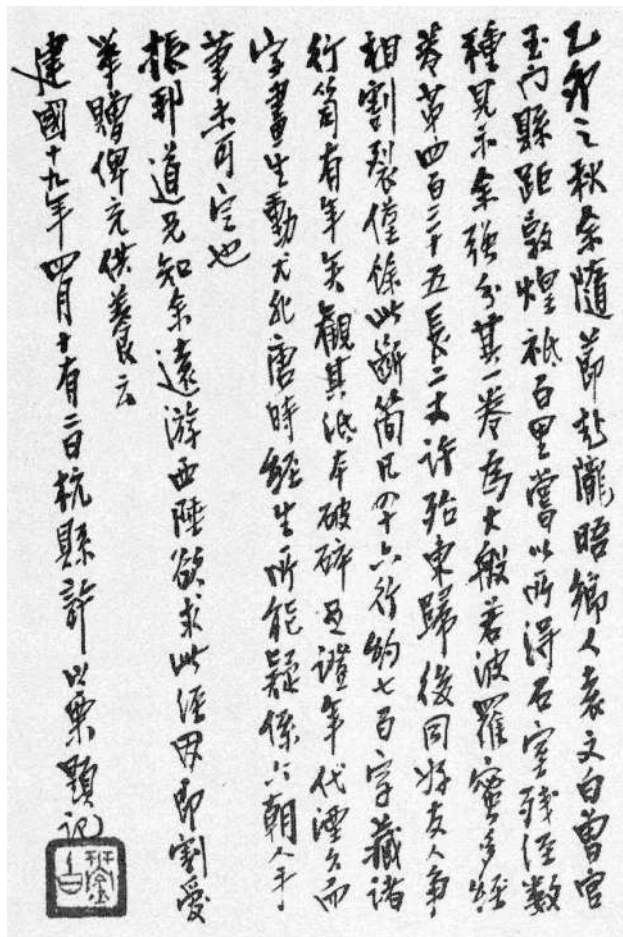 乙卯之秋余隨節於隴晤鄉人袁文白曾官
玉門縣距敦煌祇百里嘗以所得石室殘經數
種見示余強分其一卷為大般若波羅蜜多經
卷第四百三十五長二丈許殆東歸後同好友人爭
相割裂僅餘此斷簡凡四十六行約七百字藏諸
行笥有年矣觀其紙本破碎足證年代湮久而
字畫生動尤非唐時經生所能疑係六朝人手
筆未可定也
振邦道兄知余遠游西陲欲求此經因即割愛
舉贈俾充供養云
建國十九年四月十有二日杭縣許以栗題記